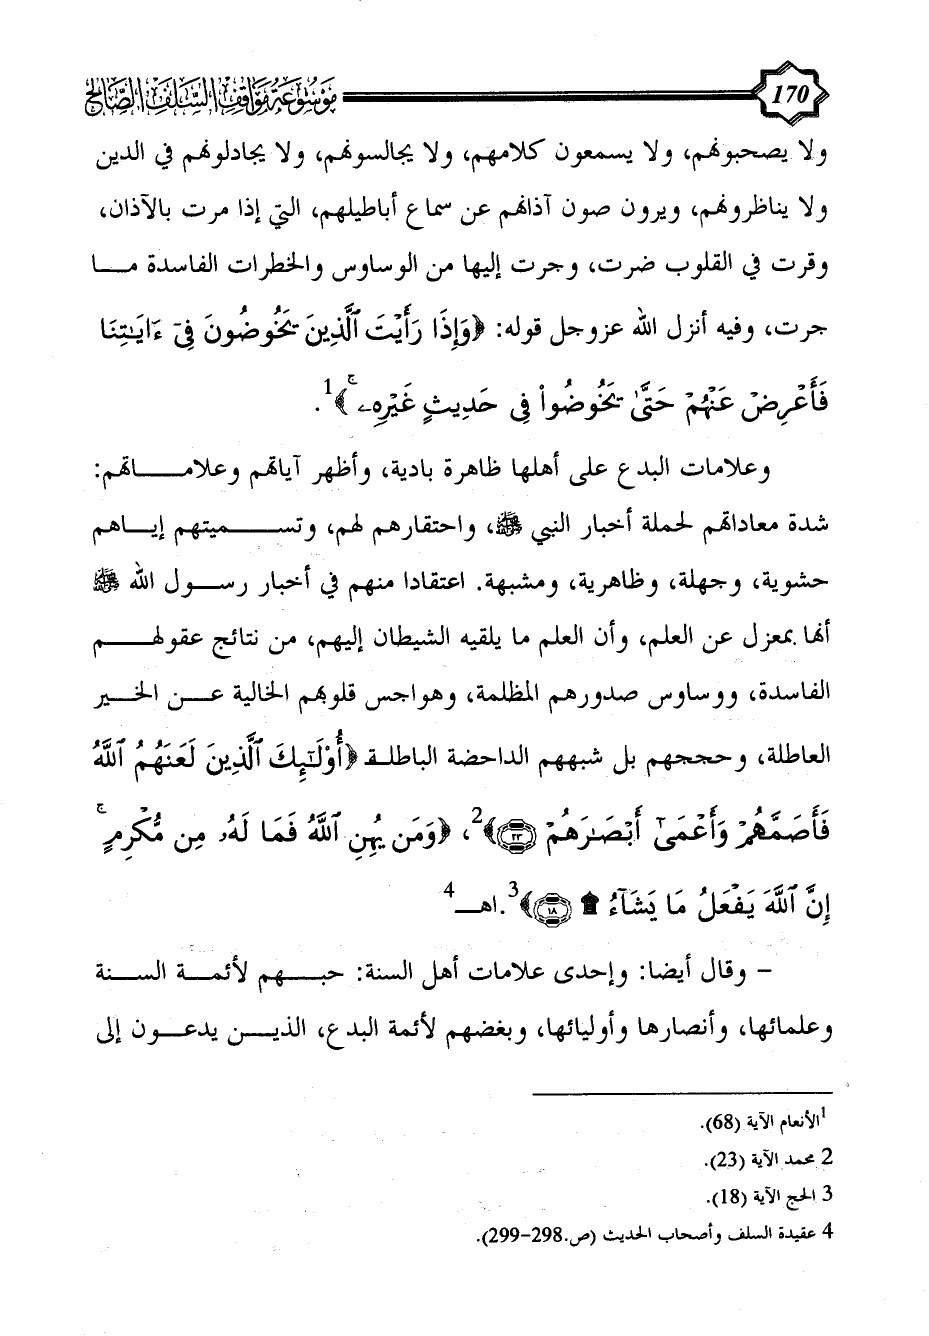 170 موسوعة مواقف السلف الصالح
ولا يصحبونهم، ولا يسمعون كلامهم، ولا يجالسونهم، ولا يجادلونهم في الدين
ولا يناظرونهم، ويرون صون آذانهم عن سماع أباطيلهم، التي إذا مرت بالآذان،
وقرت في القلوب ضرت، وجرت إليها من الوساوس والخطرات الفاسدة مــا
جرت، وفيه أنزل الله عزوجل قوله: ﴿وَإِذَا رَأَيْتَ ٱلَّذِينَ يَخُوضُونَ فِىٓ ءَايَٰتِنَا
فَأَعْرِضْ عَنْهُمْ حَتَّىٰ يَخُوضُوا۟ فِى حَدِيثٍ غَيْرِهِۦ ۚ﴾1.
وعلامات البدع على أهلها ظاهرة بادية، وأظهر آياتهم وعلامــــاتهم:
شدة معاداتهم لحملة أخبار النبي ﷺ، واحتقارهم لهم، وتســـميتهم إيــاهم
حشوية، وجهلة، وظاهرية، ومشبهة. اعتقادا منهم في أخبار رســول الله ﷺ
أنها بمعزل عن العلم، وأن العلم ما يلقيه الشيطان إليهم، من نتائج عقولهــم
الفاسدة، ووساوس صدورهم المظلمة، وهواجس قلوبهم الخالية عــن الخــير
العاطلة، وحججهم بل شبههم الداحضة الباطلـة ﴿أُو۟لَٰٓئِكَ ٱلَّذِينَ لَعَنَهُمُ ٱللَّهُ
فَأَصَمَّهُمْ وَأَعْمَىٰٓ أَبْصَٰرَهُمْ ۝٢٣﴾2، ﴿وَمَن يُهِنِ ٱللَّهُ فَمَا لَهُۥ مِن مُّكْرِمٍ ۚ
إِنَّ ٱللَّهَ يَفْعَلُ مَا يَشَآءُ ۩ ۝١٨﴾3.اهــ4
– وقال أيضا: وإحدى علامات أهل السنة: حبــهم لأئمــة الســنة
وعلمائها، وأنصارها وأوليائها، وبغضهم لأئمة البدع، الذيــن يدعــون إلى
1الأنعام الآية (68).
2 محمد الآية (23).
3 الحج الآية (18).
4 عقيدة السلف وأصحاب الحديث (ص.298-299).